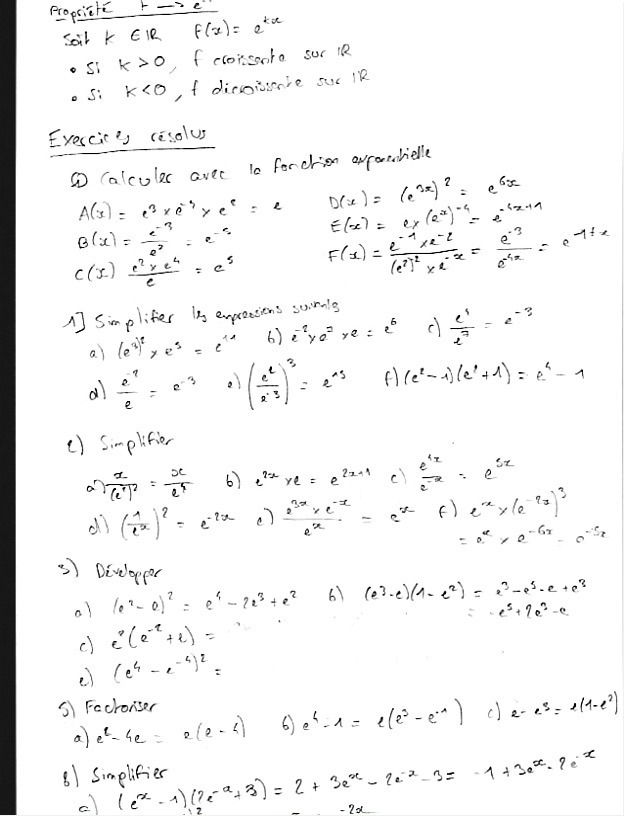 Propriété
Soit k ∈ IR f(x) = e^kx
• Si k > 0, f croissante sur IR
• Si k < 0, f décroissante sur IR
Exercices résolus
① Calculer avec la fonction exponentielle
A(x) = e^3 × e^-4 × e^2 = e
B(x) = e^-3/e^2 = e^-5
C(x) e^2 × e^4/e = e^5
D(x) = (e^3x)^2 = e^6x
E(x) = e × (e^x)^-4 = e^-4x+1
F(x) = e^-1 × e^-2/(e^2)^2 × e^-x = e^-3/e^4x = e^-1+x
1] Simplifier les expressions suivantes
a) (e^3)^2 × e^5 = e^11 b) e^-2 × e^7 × e = e^6 c) e^4/e^7 = e^-3
d) e^-2/e = e^-3 e) (e^2/e^-3)^3 = e^15 f) (e^2 - 1)(e^2 + 1) = e^4 - 1
2) Simplifier
a) x/(e^2)^2 = x/e^4 b) e^2x × e = e^2x+1 c) e^4x/e^-x = e^5x
d) (1/e^x)^2 = e^-2x e) e^3x × e^-x/e^x = e^x f) e^x × (e^-2x)^3
= e^x × e^-6x = e^-5x
3) Développer
a) (e^2 - e)^2 = e^4 - 2e^3 + e^2 b) (e^3 - e)(1 - e^2) = e^3 - e^5 - e + e^3
= -e^5 + 2e^3 - e
c) e^2(e^-2 + e) =
e) (e^4 - e^-4)^2 =
5) Factoriser
a) e^2 - 4e = e(e - 4) b) e^4 - 1 = e(e^3 - e^-1) c) e - e^3 = e(1 - e^2)
8) Simplifier
a) (e^x - 1)(2e^-x + 3) = 2 + 3e^x - 2e^-x - 3 = -1 + 3e^x - 2e^-x